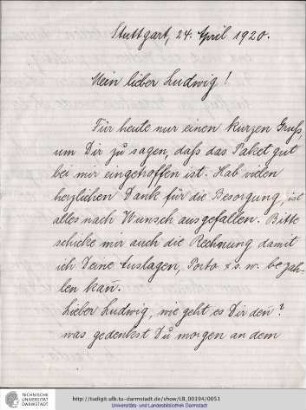 Stuttgart, 24. April 1920.
Mein lieber Ludwig!
Für heute nur einen kurzen Gruß,
um Dir zu sagen, daß das Paket gut
bei mir eingetroffen ist. Hab vielen
herzlichen Dank für die Besorgung, ist
alles nach Wunsch ausgefallen. Bitte
schicke mir auch die Rechnung damit
ich Deine Auslagen, Porto u.s.w. bezah-
len kan̄.
Lieber Ludwig, wie geht es Dir den̄?
was gedenkst Du morgen an dem
TECHNISCHE
UNIVERSITÄT
DARMSTADT
http://tudigit.ulb.tu-darmstadt.de/show/LB_00394/0053
Universitäts- und Landesbibliothek Darmstadt